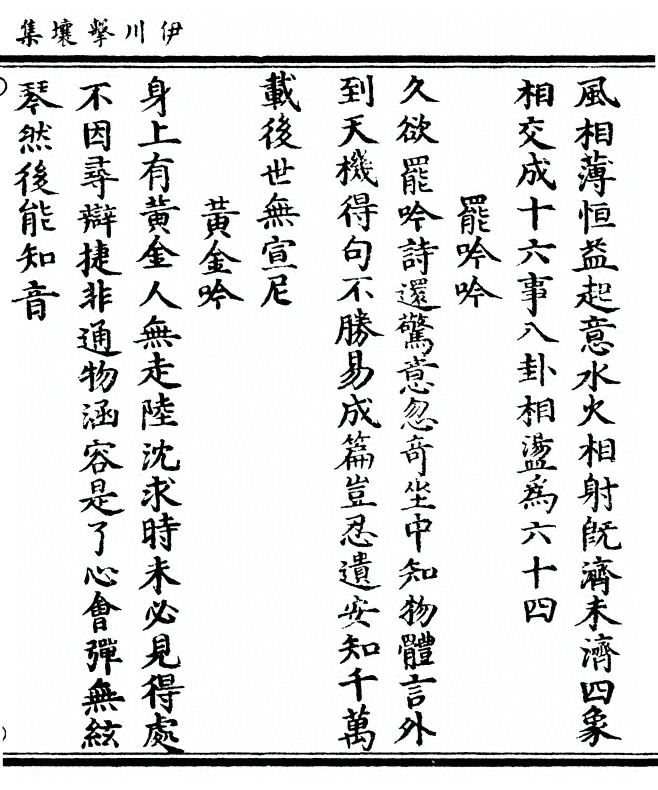 伊川擊壤集
風相薄恒益起意水火相射旣濟未濟四象
相交成十六事八卦相盪爲六十四
罷吟吟
久欲罷吟詩還驚意忽奇坐中知物體言外
到天機得句不勝易成篇豈忍遺安知千萬
載後世無宣尼
黃金吟
身上有黃金人無走陸沈求時未必見得處
不因尋辯捷非通物涵容是了心會彈無絃
琴然後能知音